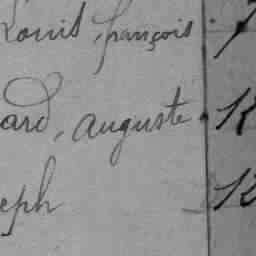 Louis, françois.
ard, auguste. 12
eph 12